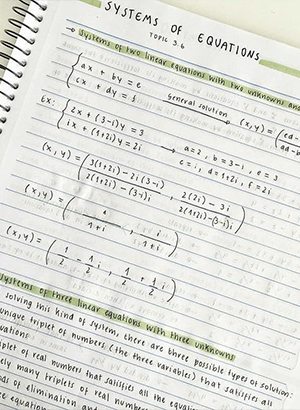 SYSTEMS OF EQUATIONS
TOPIC 3.6
→ Systems of two linear equations with two unknowns and
{ax + by = e
General solution
(x, y) = (ed
{cx + dy = f
→
ad-b
Ex: {2x + (3-i)y = 3
→ a=2, b=3-i, e=3
{ix + (1+2i)y = 2i
c=i, d=1+2i, f=2i
(x, y) = (3(1+2i) - 2i(3-i) / 2(1+2i) - (3-i)i , 2(2i) - 3i / 2(1+2i) - (3-i)i)
(x, y) = (1 / 1+i , i / 1+i)
(x, y) = (1/2 - 1/2 i , 1/2 + 1/2 i)
Systems of three linear equations with three unknowns
solving this kind of system, there are three possible types of solution:
unique triplet of numbers (the three variables) that satisfies all
uations
iplet of real numbers that satisfies all the equati
ely many triplets of real numbers
ds of elimination and